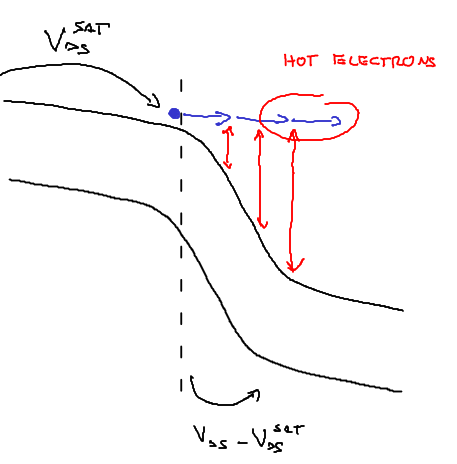 V_DS^SAT
HOT ELECTRONS
V_DS - V_DS^SAT